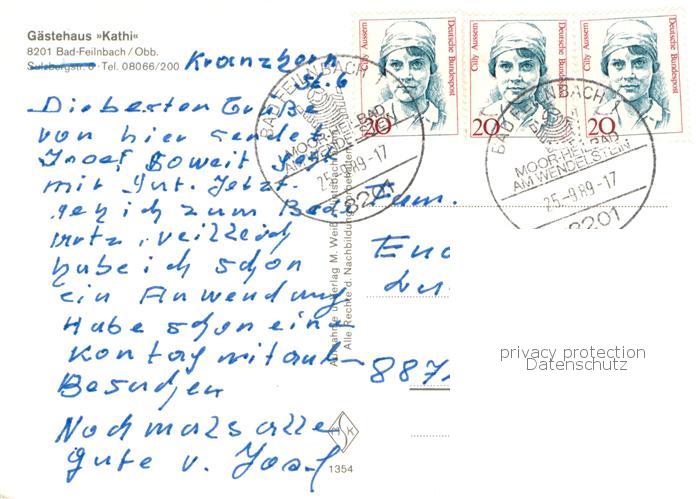 Gästehaus »Kathi«
8201 Bad-Feilnbach / Obb.
Sulzbergstr. 6 · Tel. 08066/200
Kranzhorn
Die besten Grüße
von hier sendet
Josef, soweit geht
mir gut. Jetzt.
geh ich zum Bade
habe ich schon
ein Anwendung
Habe schon ein
Kontag mit
Besuchen
Nochmals alle
gute v. Josef
Deutsche Bundespost
Cilly Aussem
20
Deutsche Bundespost
Cilly Aussem
20
Deutsche Bundespost
Cilly Aussem
20
BAD FEILNBACH 1
MOOR-HEILBAD
AM WENDELSTEIN
25-9.89-17
8201
BAD FEILNBACH 1
MOOR-HEILBAD
AM WENDELSTEIN
25-9.89-17
8201
Fam.
887
Alle Rechte d. Nachbildung vorbehalten
1354
privacy protection
Datenschutz